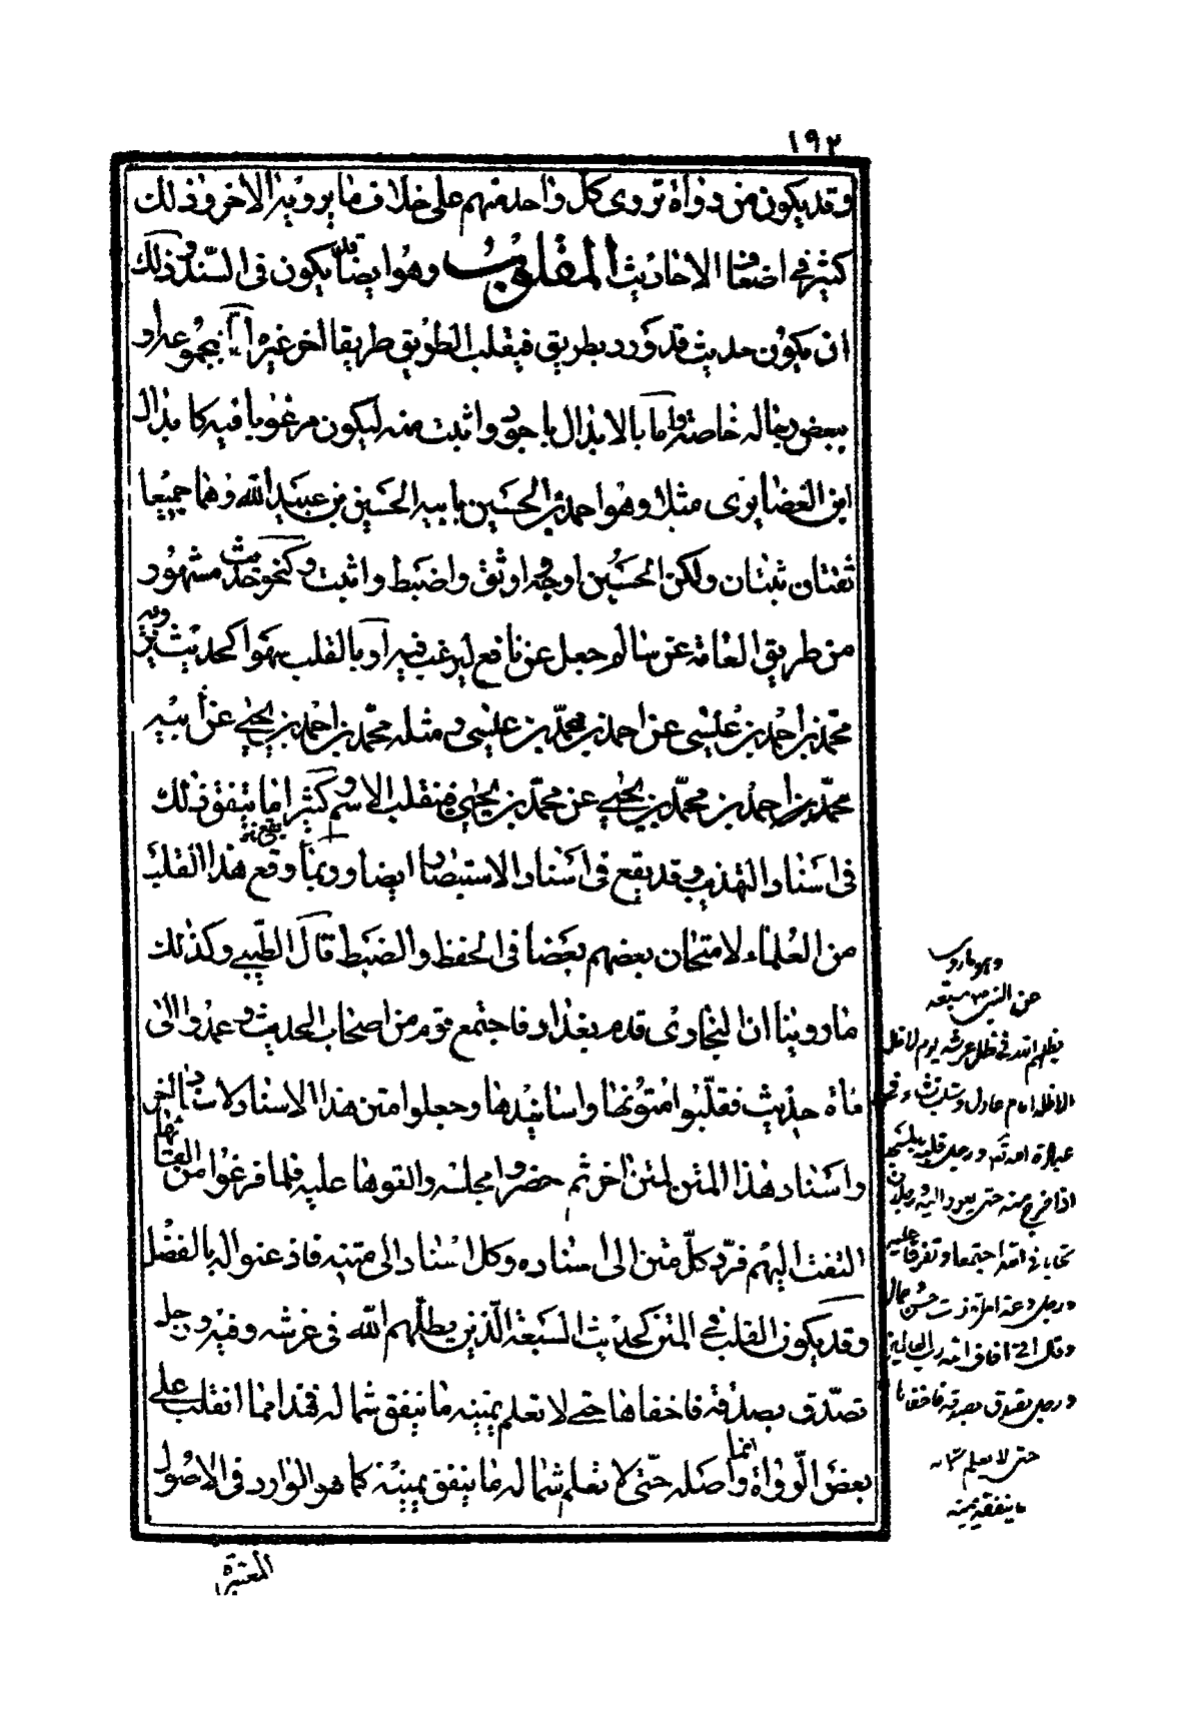 ١٩٢
وقد يكون من رواة تروى كل واحد منهم على خلاف ما يرويه الاخر وذلك
كثير فى اضعاف الاحاديث المقلوب وهو ايضا قد يكون فى السند وذلك
ان يكون حديث قد ورد بطريق فيقلب الطريق طريقا اخر غيره اما بمجموعه او
ببعض رجاله خاصة واما بالابدال باجود واثبت منه ليكون مرغوبا فيه كابدال
ابن الغضايرى مثلا وهو احمد بن الحسين بابيه الحسين بن عبيد الله وهما جميعا
ثقتان ثبتان ولكن الحسين اوجه اوثق واضبط واثبت وكنحو حديث مشهور
من طريق العامة عن سالم جعل عن نافع ليرغب فيه او بالقلب سهوا كحديث يرويه
محمد بن احمد بن عيسى عن احمد بن محمد بن عيسى ومثله محمد بن احمد بن يحيى عن ابيه
محمد بن احمد بن محمد بن يحيى عن محمد بن يحيى فينقلب الاسم وكثيرا ما يتفق ذلك
فى اسناد التهذيب وقد يقع فى اسناد الاستبصار ايضا وربما وقع يقع هذا القلب
من العلماء لامتحان بعضهم بعضا فى الحفظ والضبط قال الطيبى وكذلك
ما روينا ان البخارى قدم بغداد فاجتمع قوم من اصحاب الحديث وعمدوا الى
مأة حديث فقلبوا متونها واسانيدها وجعلوا متن هذا الاسناد لاسناد اخر
واسناد هذا المتن لمتن اخر ثم حضروا مجلسه والقوها عليه فلما فرغوا من القائها
التفت اليهم فرد كل متن الى اسناده وكل اسناد الى متنه فاذعنوا له بالفضل
وقد يكون القلب فى المتن كحديث السبعة الذين يظلهم الله فى عرشه وفيه ورجل
تصدق بصدقة فاخفاها حتى لا تعلم يمينه ما ينفق شماله فهذا مما انقلب على
بعض الرواة وانما اصله حتى لا تعلم شماله ما ينفق يمينه كما هو الوارد فى الاصول
المعتبرة
وهو ما روى
عن النبى ص سبعة
يظلهم الله فى ظل عرشه يوم لا ظل
الا ظله امام عادل وشاب نشاء فى
عبادة الله ورجل قلبه بالمسجد
اذا خرج منه حتى يعود اليه ورجلان
تحابا فى الله اجتمعا وتفرقا عليه
ورجل دعته امراة ذات حسن وجمال
وقال انى اخاف الله رب العالمين
ورجل تصدق بصدقة فاخفاها
حتى لا يعلم شماله
ما ينفقه يمينه